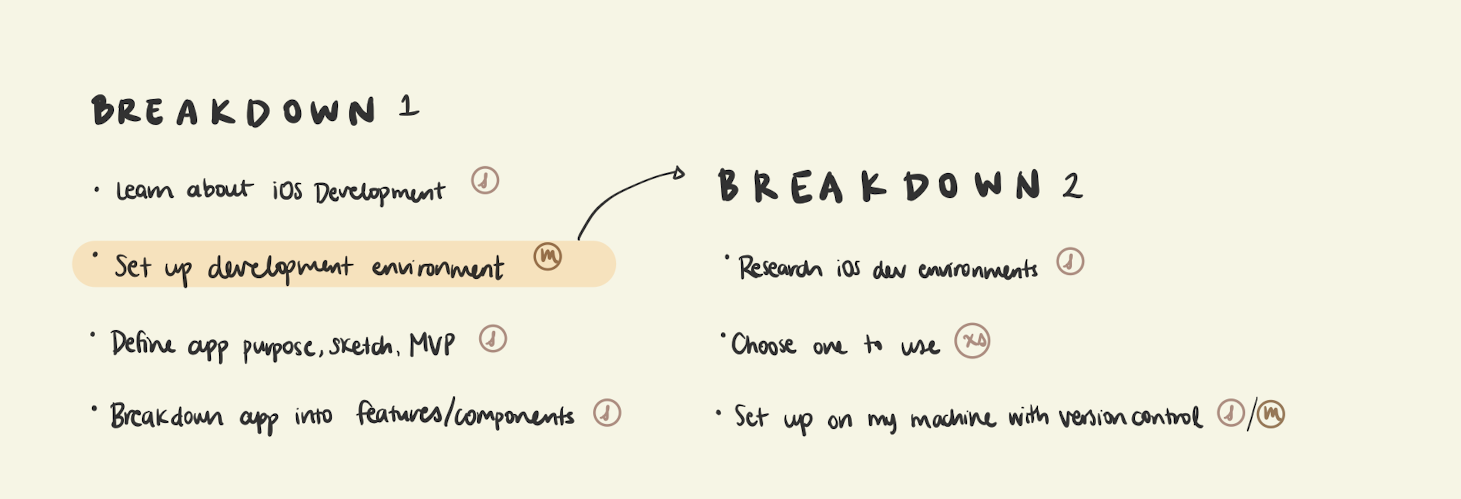 BREAKDOWN 1
• Learn about iOS Development s
• Set up development environment m
• Define app purpose, sketch, MVP s
• Breakdown app into features/components s
BREAKDOWN 2
• Research iOS dev environments s
• Choose one to use xs
• Set up on my machine with version control s/m